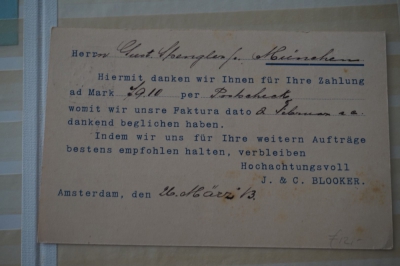 Herrn Gust. Spengler München
Hiermit danken wir Ihnen für Ihre Zahlung
ad Mark 59.10 per Postcheck
womit wir unsre Faktura dato Februar a.c.
dankend beglichen haben.
Indem wir uns für Ihre weitern Aufträge
bestens empfohlen halten, verbleiben
Hochachtungsvoll
J. & C. BLOOKER.
Amsterdam, den 26 März 13.